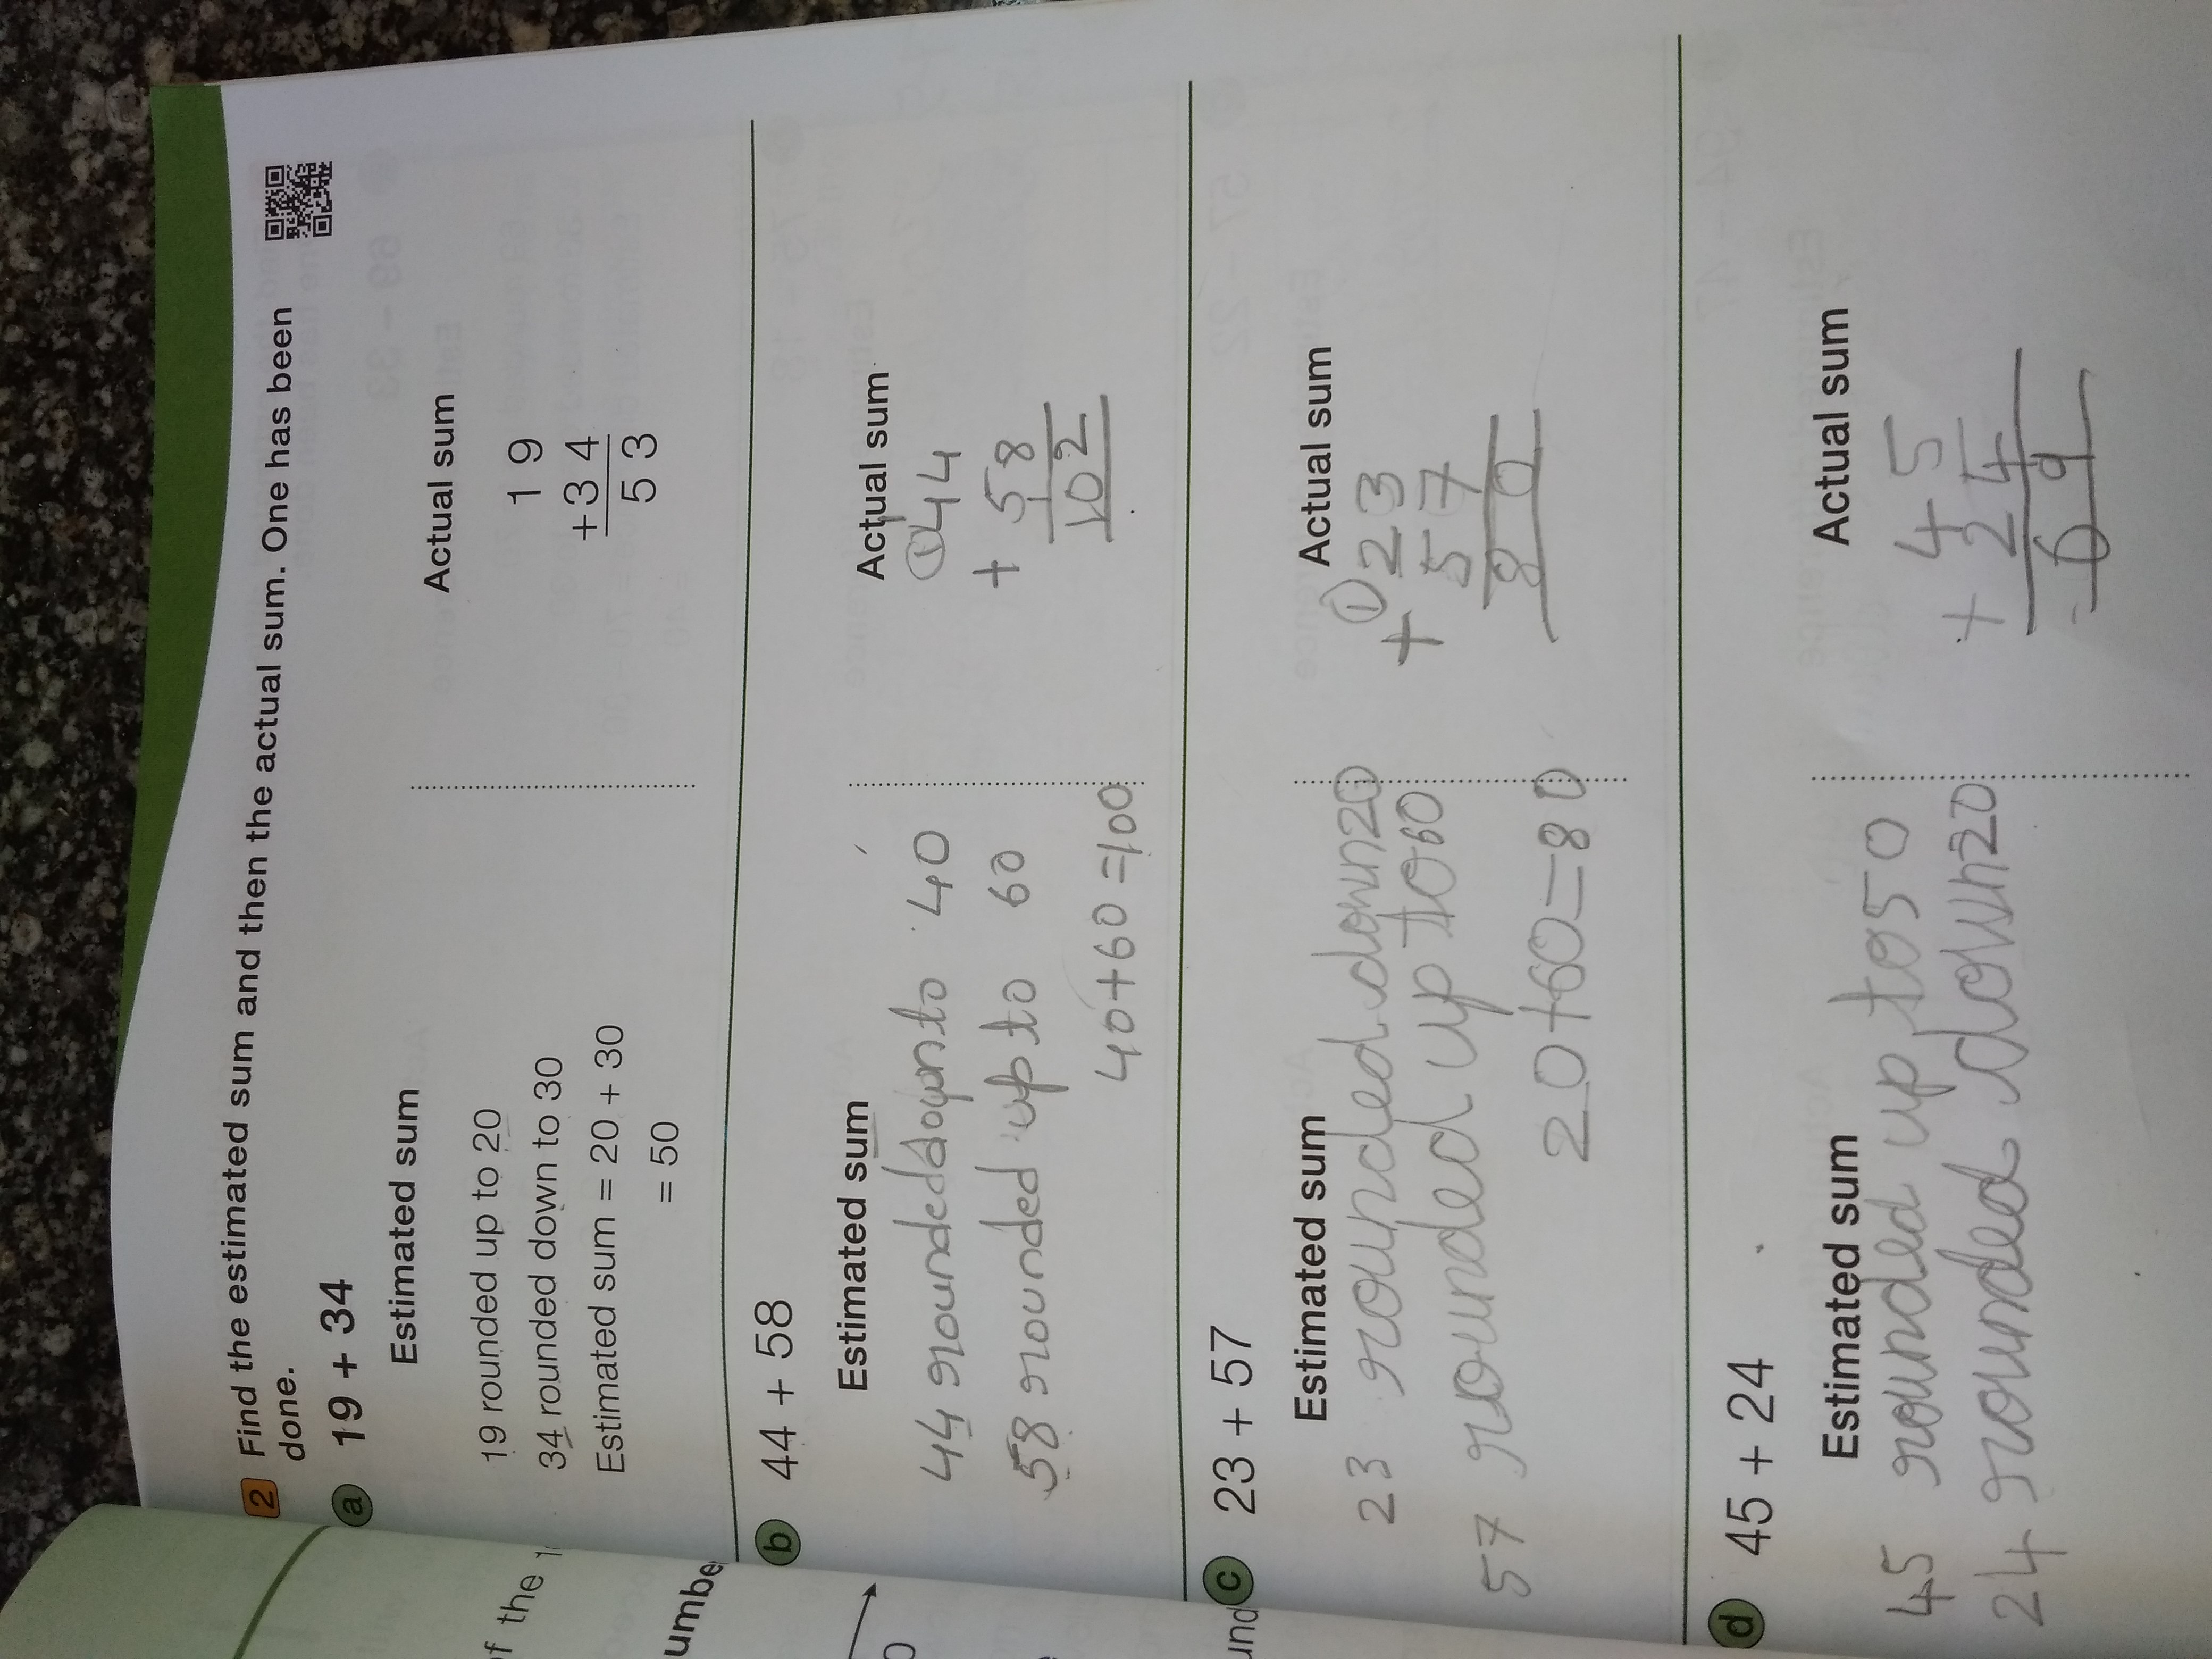 2 Find the estimated sum and then the actual sum. One has been
done.
a 19 + 34
Estimated sum
19 rounded up to 20
34 rounded down to 30
Estimated sum = 20 + 30
= 50
Actual sum
1 9
+3 4
5 3
b 44 + 58
Estimated sum
44 rounded down to 40
58 rounded up to 60
40+60=100
Actual sum
1 44
+ 58
102
c 23 + 57
Estimated sum
23 rounded down 20
57 rounded up to 60
20+60=80
Actual sum
1 23
+ 57
80
d 45 + 24
Estimated sum
45 rounded up to 50
24 rounded down 20
Actual sum
4 5
+ 2 4
6 9
of the
umbe
und